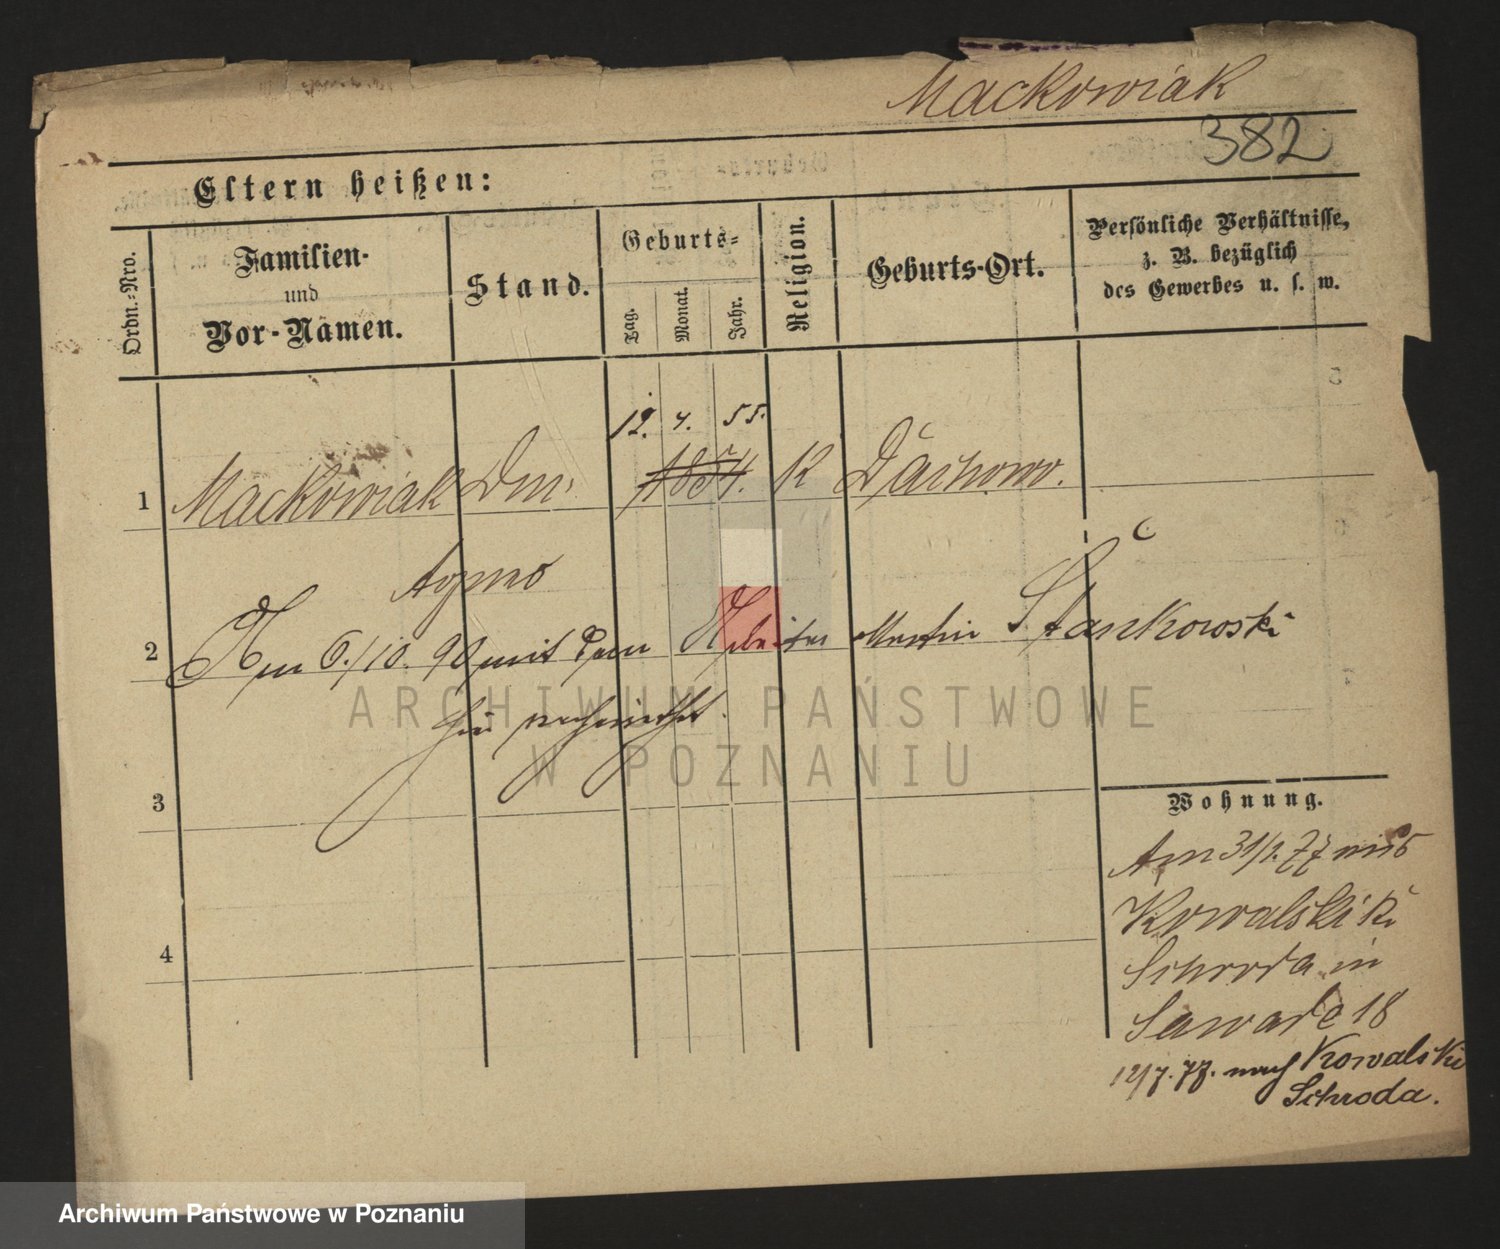 Mackowiak
382
Eltern heißen:
Ordn.-Nro.
Familien-
und
Vor-Namen.
Stand.
Geburts-
Tag.
Monat.
Jahr.
Religion.
Geburts-Ort.
Persönliche Verhältnisse,
z. B. bezüglich
des Gewerbes u. s. w.
12. 4. 55.
1 Mackowiak 1854. K Dachowo.
2 Am 6./10. 90 mit dem Arbeiter Martin Stankowski
hier verheirathet.
3
4
Wohnung.
Am 31/ 77 aus
Kowalski
Schroda in
Sawade 18
12/7. 77. nach Kowalski
Schroda.
ARCHIWUM PAŃSTWOWE
W POZNANIU
Archiwum Państwowe w Poznaniu